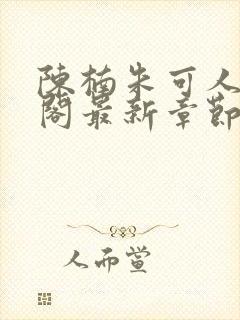 陳楠朱可人
閣最新章節
人而萱